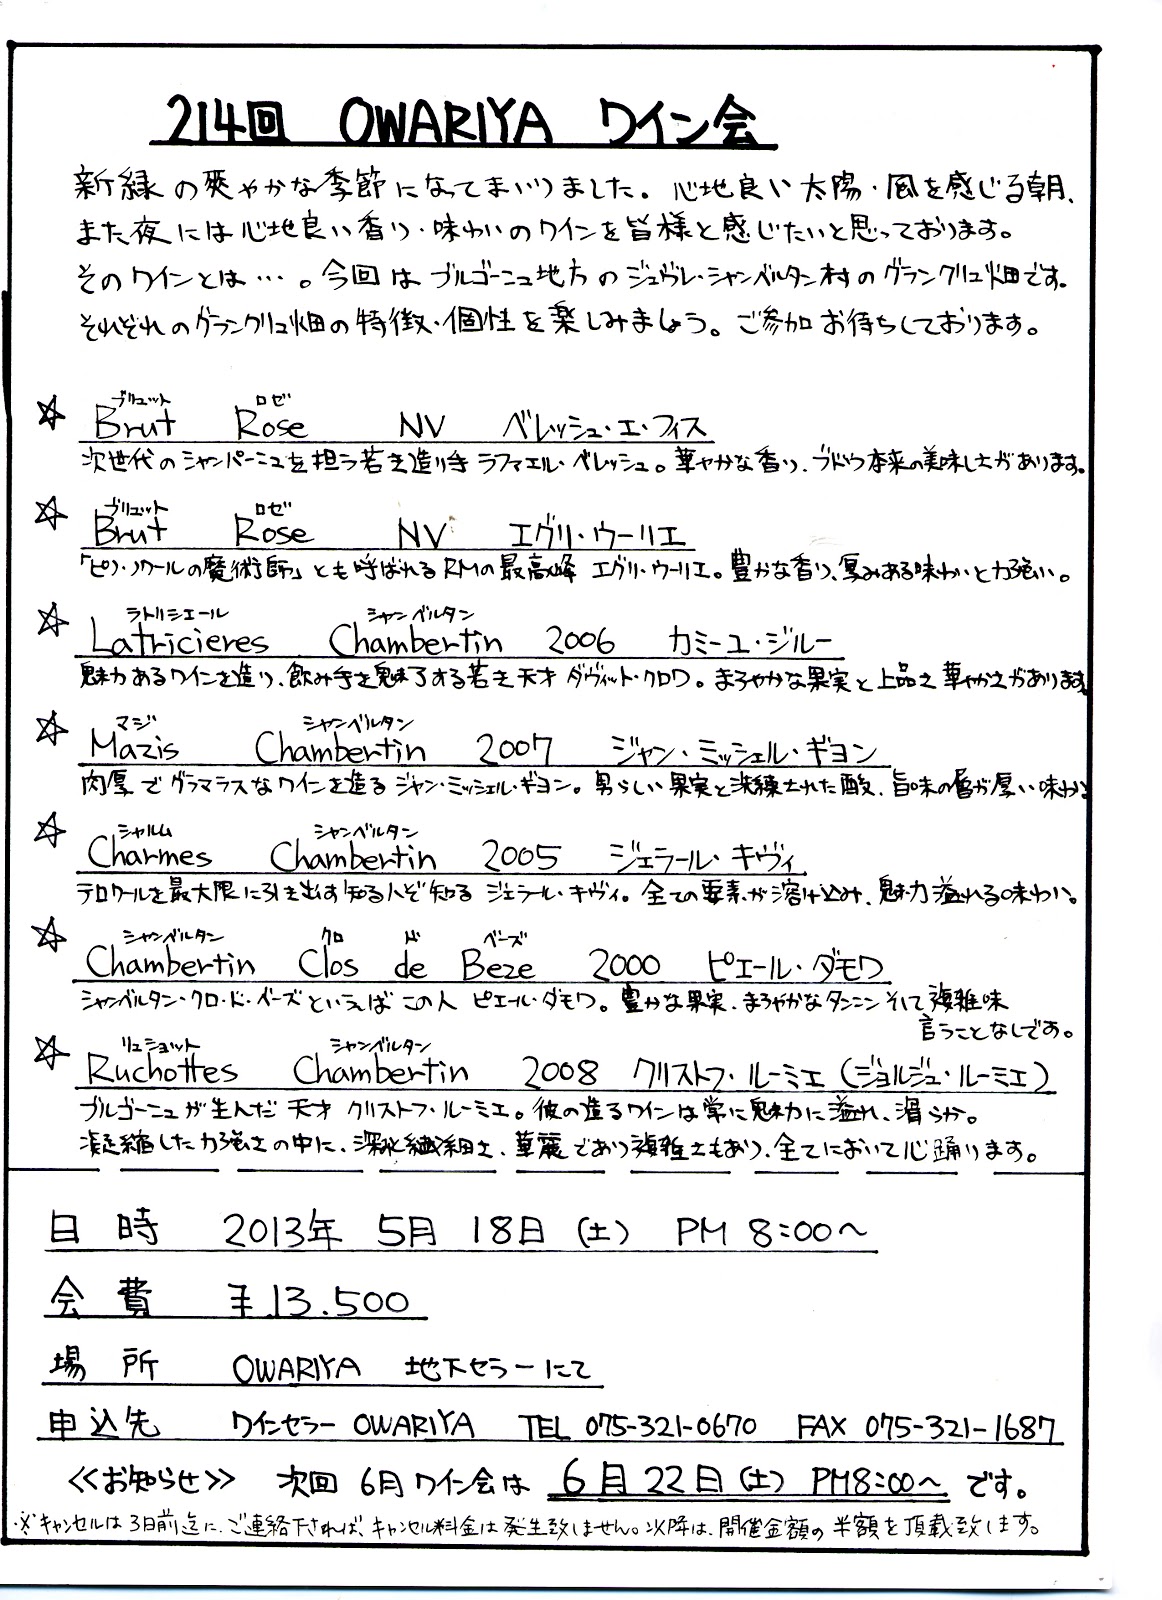 214回 OWARIYA ワイン会
新緑の爽やかな季節になってまいりました。心地良い太陽・風を感じる朝、
また夜には心地良い香り・味わいのワインを皆様と感じたいと思っております。
そのワインとは…。今回はブルゴーニュ地方のジュヴレ・シャンベルタン村のグランクリュ畑です。
それぞれのグランクリュ畑の特徴・個性を楽しみましょう。ご参加お待ちしております。
ブリュット ロゼ
☆ Brut Rose NV ベレッシュ・エ・フィス
次世代のシャンパーニュを担う若き造り手 ラファエル・ベレッシュ。華やかな香り、ブドウ本来の美味しさがあります。
ブリュット ロゼ
☆ Brut Rose NV エグリ・ウーリエ
「ピノ・ノワールの魔術師」とも呼ばれるRMの最高峰 エグリ・ウーリエ。豊かな香り、厚みある味わいと力強い。
ラトリシエール シャンベルタン
☆ Latricieres Chambertin 2006 カミーユ・ジルー
魅力あるワインを造り、飲み手を魅了する若き天才 ダヴィット・クロワ。まろやかな果実と上品さ華やかさがあります。
マジ シャンベルタン
☆ Mazis Chambertin 2007 ジャン・ミッシェル・ギヨン
肉厚でグラマラスなワインを造る ジャン・ミッシェル・ギヨン。男らしい果実と洗練された酸、旨味の層が厚い味わい
シャルム シャンベルタン
☆ Charmes Chambertin 2005 ジェラール・キヴィ
テロワールを最大限に引き出す知る人ぞ知る ジェラール・キヴィ。全ての要素が溶け込み、魅力溢れる味わい。
シャンベルタン クロ ド ベーズ
☆ Chambertin Clos de Beze 2000 ピエール・ダモワ
シャンベルタン・クロ・ド・ベーズといえばこの人 ピエール・ダモワ。豊かな果実、まろやかなタンニンそして複雑味
言うことなしです。
リュショット シャンベルタン
☆ Ruchottes Chambertin 2008 クリストフ・ルーミエ(ジョルジュ・ルーミエ)
ブルゴーニュが生んだ天才 クリストフ・ルーミエ。彼の造るワインは常に魅力に溢れ、滑らか。
凝縮した力強さの中に、深み繊細さ、華麗であり複雑さもあり、全てにおいて心踊ります。
日時 2013年 5月 18日(土) PM 8:00〜
会費 ¥13.500
場所 OWARIYA 地下セラーにて
申込先 ワインセラー OWARIYA TEL 075-321-0670 FAX 075-321-1687
≪お知らせ≫ 次回 6月ワイン会は 6月22日(土) PM8:00〜 です。
※キャンセルは3日前迄に、ご連絡下されば、キャンセル料金は発生致しません。以降は、開催金額の半額を頂載致します。